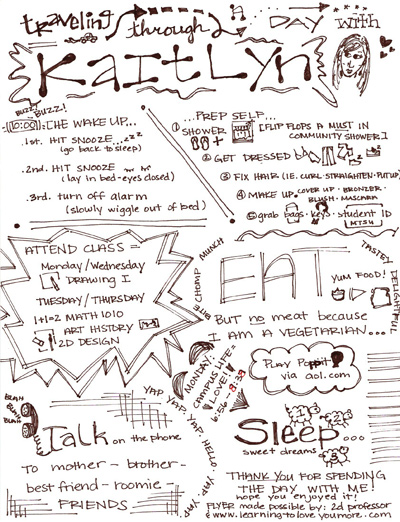 traveling through A DAY with
KAITLYN
BUZZ BUZZ!
10:00 THE WAKE UP...
1st. HIT SNOOZE ...zzz
(go back to sleep)
2nd. HIT SNOOZE
(lay in bed-eyes closed)
3rd. turn off alarm
(slowly wiggle out of bed)
...PREP SELF...
① SHOWER
[FLIP FLOPS A MUST IN COMMUNITY SHOWER]
② GET DRESSED
③ FIX HAIR (IE. CURL·STRAIGHTEN·PUTUP)
④ MAKE UP·COVER UP·BRONZER·
BLUSH·MASCARA
⑤ grab bags·keys·student ID
MTSU
ATTEND CLASS -
Monday/Wednesday
DRAWING I
TUESDAY/THURSDAY
1+1=2 MATH 1010
ART HISTORY
2D DESIGN
BITE CHOMP MUNCH
EAT
TASTEY DELIGHTFUL
YUM FOOD!
BUT no meat because
I AM A VEGETARIAN...
MONDAY:
CAMPUS LIFE:
LOVE!
6:56 - 8:38
PLAY Poppit!
via aol.com
BLAH
BLAH
BLAH
YAP YAP YAP YAP. HELLO. YAP. YAP
Talk on the phone
TO mother - brother -
best friend - roomie -
FRIENDS
Sleep...
sweet dreams
THANK YOU FOR SPENDING
THE DAY WITH ME!
hope you enjoyed it!
FLYER made possible by: 2d professor
& www.learningtoloveyoumore.com